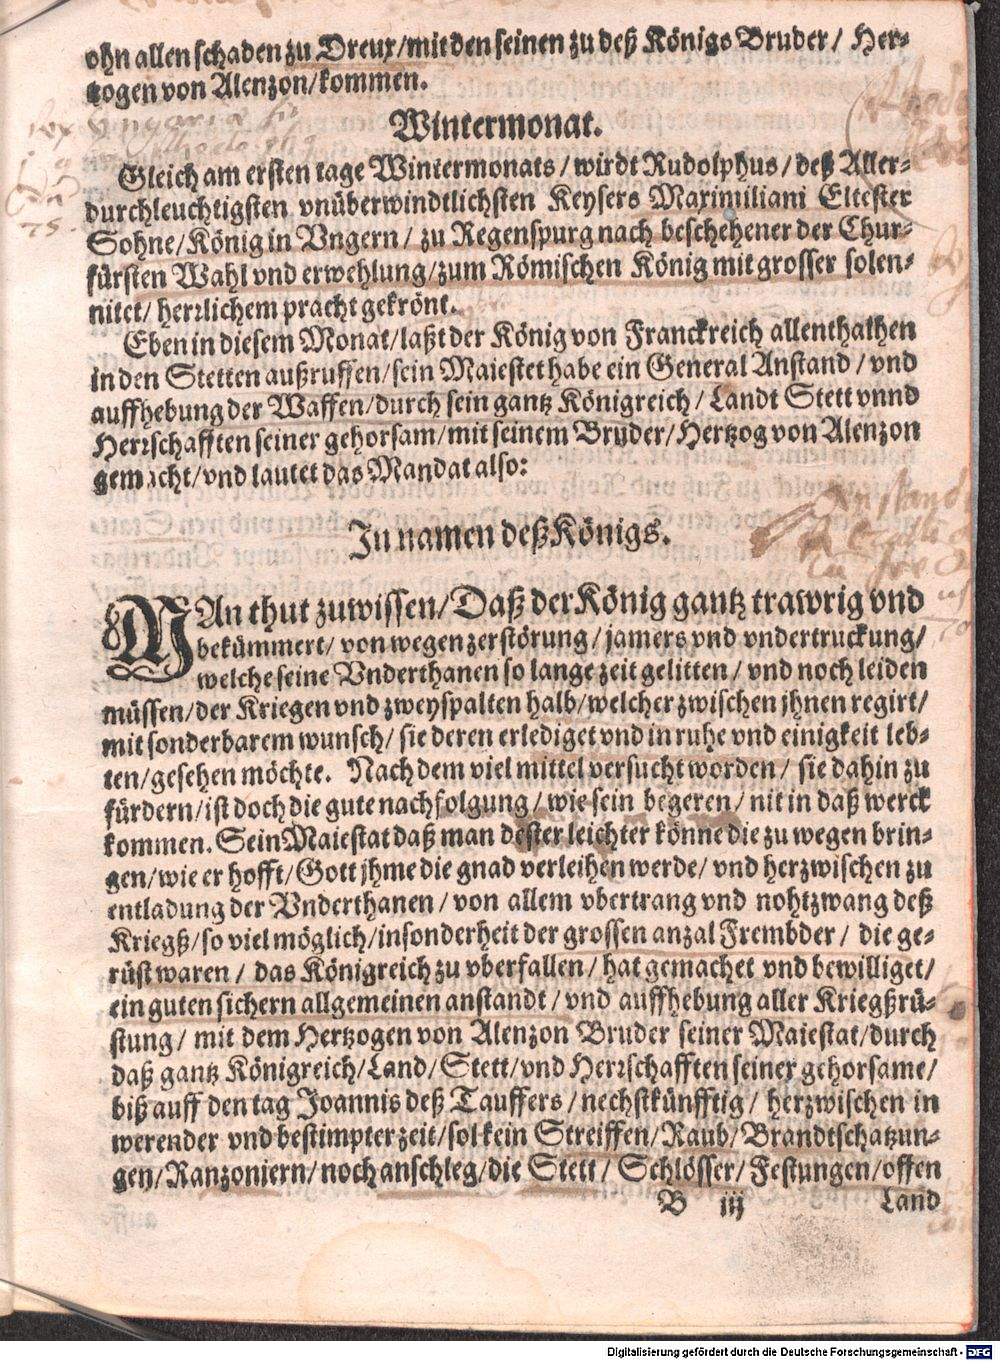 ohn allen schaden zu Dreux/mit den seinen zu deß Königs Bruder/ Her-
tzogen von Alenzon/kommen.
Wintermonat.
Gleich am ersten tage Wintermonats/wirdt Rudolphus/deß Aller-
durchleuchtigsten vnüberwindtlichsten Keysers Maximiliani Eltester
Sohne/König in Vngern/ zu Regenspurg nach beschehener der Chur-
fürsten Wahl vnd erwehlung/zum Römischen König mit grosser solen-
nitet/herrlichem pracht gekrönt.
Eben in diesem Monat/laßt der König von Franckreich allenthalben
in den Stetten außruffen/sein Maiestet habe ein General Anstand/vnd
auffhebung der Waffen/durch sein gantz Königreich/Landt Stett vnnd
Herrschafften seiner gehorsam/mit seinem Bruder/Hertzog von Alenzon
gemacht/vnd lautet das Mandat also:
In namen deß Königs.
MAn thut zuwissen/Daß der König gantz trawrig vnd
bekümmert/von wegen zerstörung/jamers vnd vndertruckung/
welche seine Vnderthanen so lange zeit gelitten/vnd noch leiden
müssen/der Kriegen vnd zweyspalten halb/welcher zwischen jhnen regirt/
mit sonderbarem wunsch/sie deren erlediget vnd in ruhe vnd einigkeit leb-
ten/gesehen möchte. Nach dem viel mittel versucht worden/ sie dahin zu
fürdern/ist doch die gute nachfolgung/wie sein begeren/nit in daß werck
kommen. Sein Maiestat daß man dester leichter könne die zu wegen brin-
gen/wie er hofft/Gott jhme die gnad verleihen werde/vnd herzwischen zu
entladung der Vnderthanen/von allem vbertrang vnd nohtzwang deß
Kriegß/so viel möglich/insonderheit der grossen anzal Frembder/ die ge-
rüst waren/ das Königreich zu vberfallen/hat gemachet vnd bewilliget/
ein guten sichern allgemeinen anstandt/vnd auffhebung aller Kriegßrü-
stung/ mit dem Hertzogen von Alenzon Bruder seiner Maiestat/durch
daß gantz Königreich/Land/Stett/vnd Herrschafften seiner gehorsame/
biß auff den tag Joannis deß Tauffers/nechstkünfftig/ herzwischen in
werender vnd bestimpter zeit/sol kein Streiffen/Raub/Brandtschatzun-
gen/Ranzoniern/noch anschleg/die Stett/ Schlösser/Festungen/offen
B iij Land
Digitalisierung gefördert durch die Deutsche Forschungsgemeinschaft - DFG